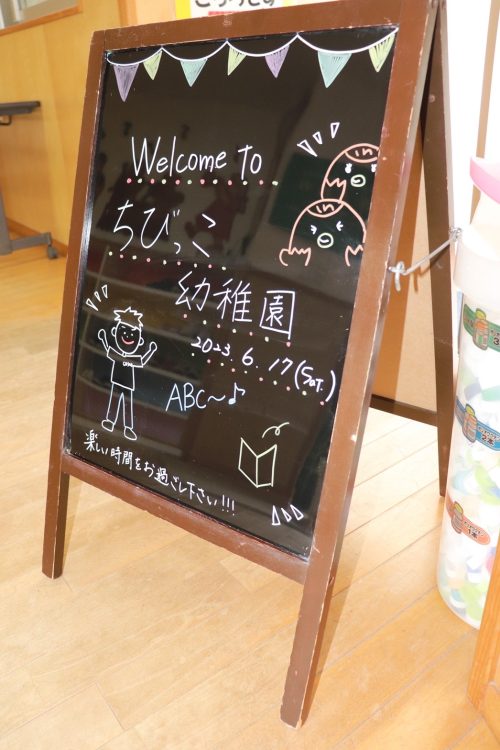 Welcome to
ちびっこ
幼稚園
2023. 6. 17 (SAT.)
ABC〜♪
楽しい時間をお過ごし下さい!!!